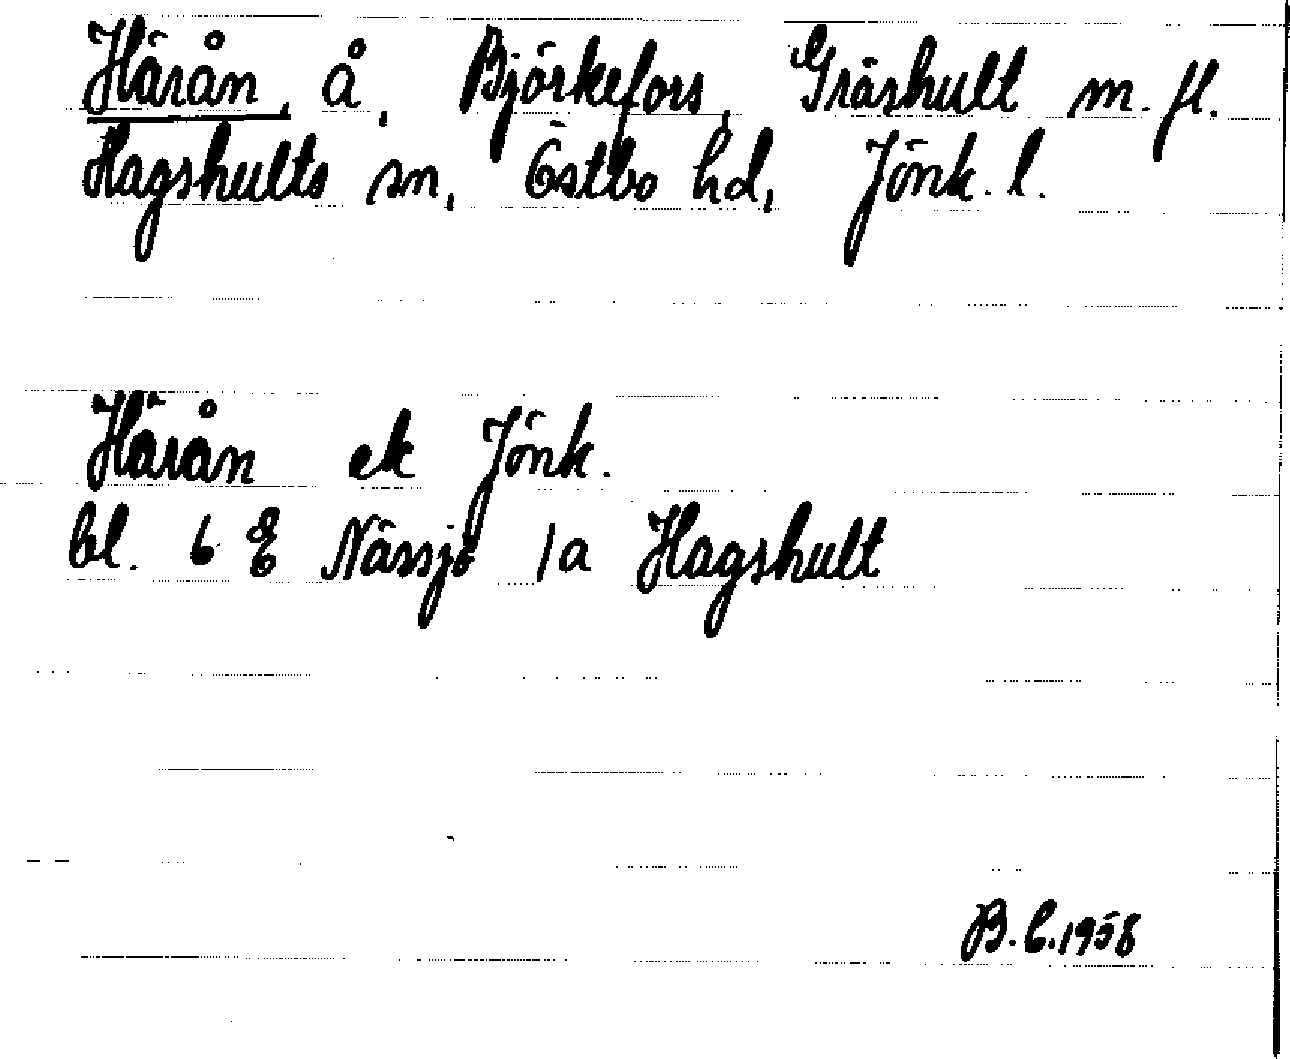 Härån, å, Björkefors, Gräshult m. fl.
Hagshults sn, Östbo hd, Jönk. l.
Härån ek Jönk.
bl. 6 E Nässjö 1a Hagshult
B.C.1958